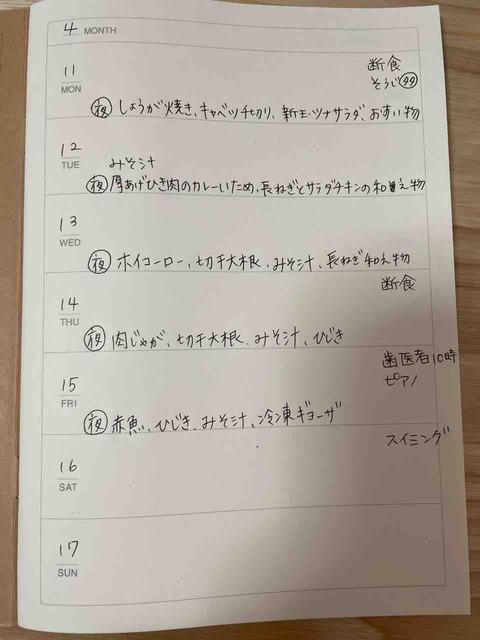 4 MONTH
11 断食
MON そうじ
夜 しょうが焼き、キャベツ千切り、新玉ツナサラダ、おすい物
12
TUE みそ汁
夜 厚あげひき肉のカレーいため、長ねぎとサラダチキンの和え物
13
WED
夜 ホイコーロー、切干大根、みそ汁、長ねぎ和え物
14 断食
THU
夜 肉じゃが、切干大根、みそ汁、ひじき
15 歯医者10時
FRI ピアノ
夜 赤魚、ひじき、みそ汁、冷凍ギョーザ
16 スイミング
SAT
17
SUN